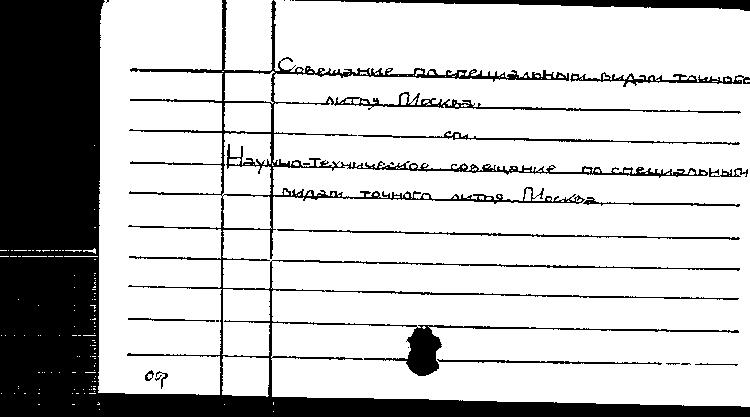 Совещание по специальным видам точного
литья Москва.
см.
Научно-техническое совещание по специальным
видам точного литья. Москва